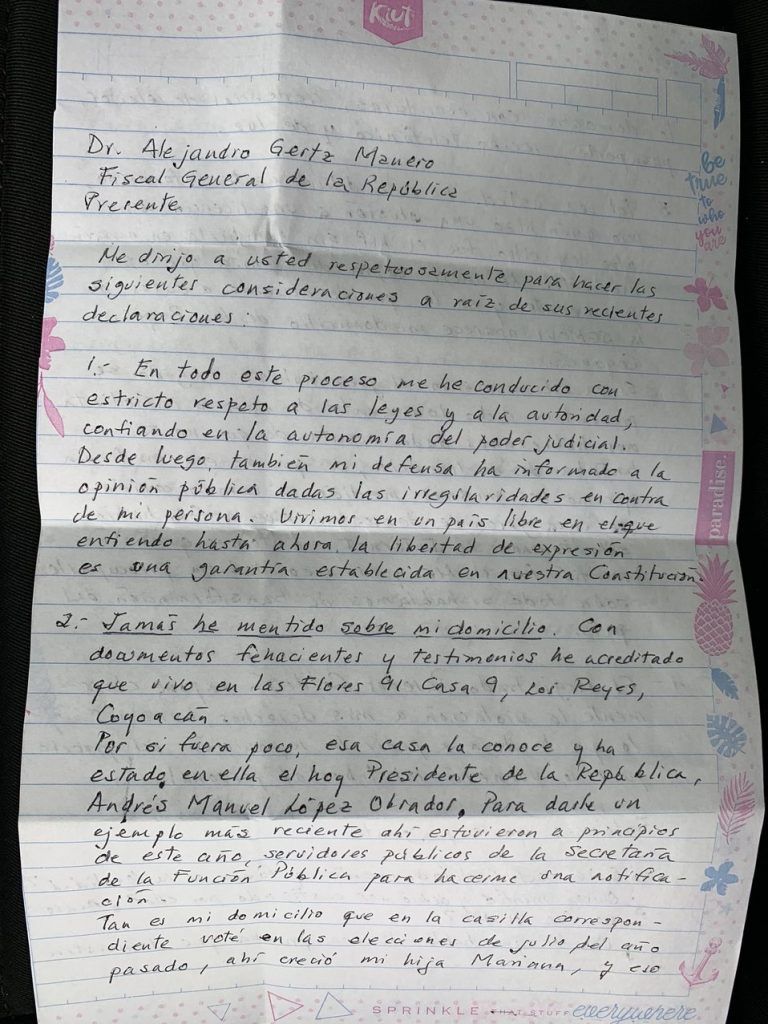 KiUT
Dr. Alejandro Gertz Manero
Fiscal General de la República
Presente
Me dirijo a usted respetuosamente para hacer las
siguientes consideraciones a raíz de sus recientes
declaraciones:
1.- En todo este proceso me he conducido con
estricto respeto a las leyes y a la autoridad,
confiando en la autonomía del poder judicial.
Desde luego, también mi defensa ha informado a la
opinión pública dadas las irregularidades en contra
de mi persona. Vivimos en un país libre en el que
entiendo hasta ahora, la libertad de expresión
es una garantía establecida en nuestra Constitución.
2.- Jamás he mentido sobre mi domicilio. Con
documentos fehacientes y testimonios he acreditado
que vivo en las Flores 91 Casa 9, Los Reyes,
Coyoacán.
Por si fuera poco, esa casa la conoce y ha
estado en ella el hoy Presidente de la República,
Andrés Manuel López Obrador. Para darle un
ejemplo más reciente ahí estuvieron a principios
de este año, servidores públicos de la Secretaría
de la Función Pública para hacerme una notifica-
ción.
Tan es mi domicilio que en la casilla correspon-
diente voté en las elecciones de julio del año
pasado, ahí creció mi hija Mariana, y eso
be
true
to
who
you
are
paradise.
SPRINKLE THAT STUFF everywhere